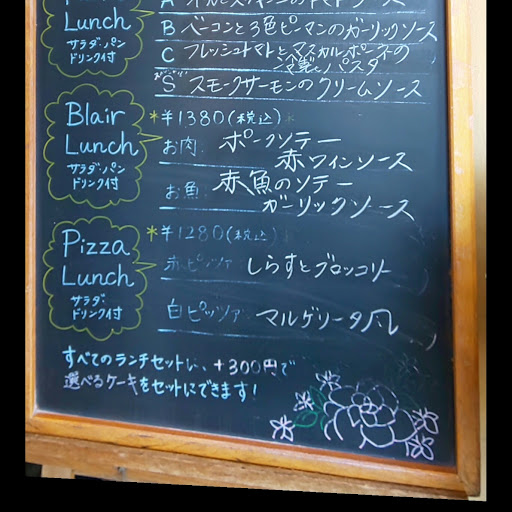 Lunch
サラダ・パン
ドリンク付
B ベーコンと3色ピーマンのガーリックソース
C フレッシュトマトとマスカルポーネの
冷製パスタ
S スモークサーモンのクリームソース
Blair
Lunch
サラダ・パン
ドリンク付
*¥1380(税込)*
お肉 ポークソテー
赤ワインソース
お魚 赤魚のソテー
ガーリックソース
Pizza
Lunch
サラダ
ドリンク付
*¥1280(税込)
赤ピッツァ しらすとブロッコリー
白ピッツァ マルゲリータ
すべてのランチセットに、+300円で
選べるケーキをセットにできます!